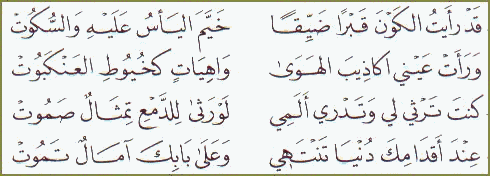 قَدْ رَأَيتُ الكَوْنَ قَبْرًا ضَيِّقًا خَيَّمَ اليَأْسُ عَلَيْهِ وَالسُّكُوتْ
وَرَأَتْ عَيْنِي أَكَاذِيبَ الهَوَى وَاهِيَاتٍ كَخُيُوطِ العَنْكَبُوتْ
كُنتَ تَرْثِي لِي وَتَدْرِي أَلَمِي لَوْ رَثَى لِلدَّمْعِ تِمْثَالٌ صَمُوتْ
عِنْدَ أَقْدَامِكَ دُنْيَا تَنْتَهِي وَعَلَى بَابِكَ آمَالٌ تَمُوتْ